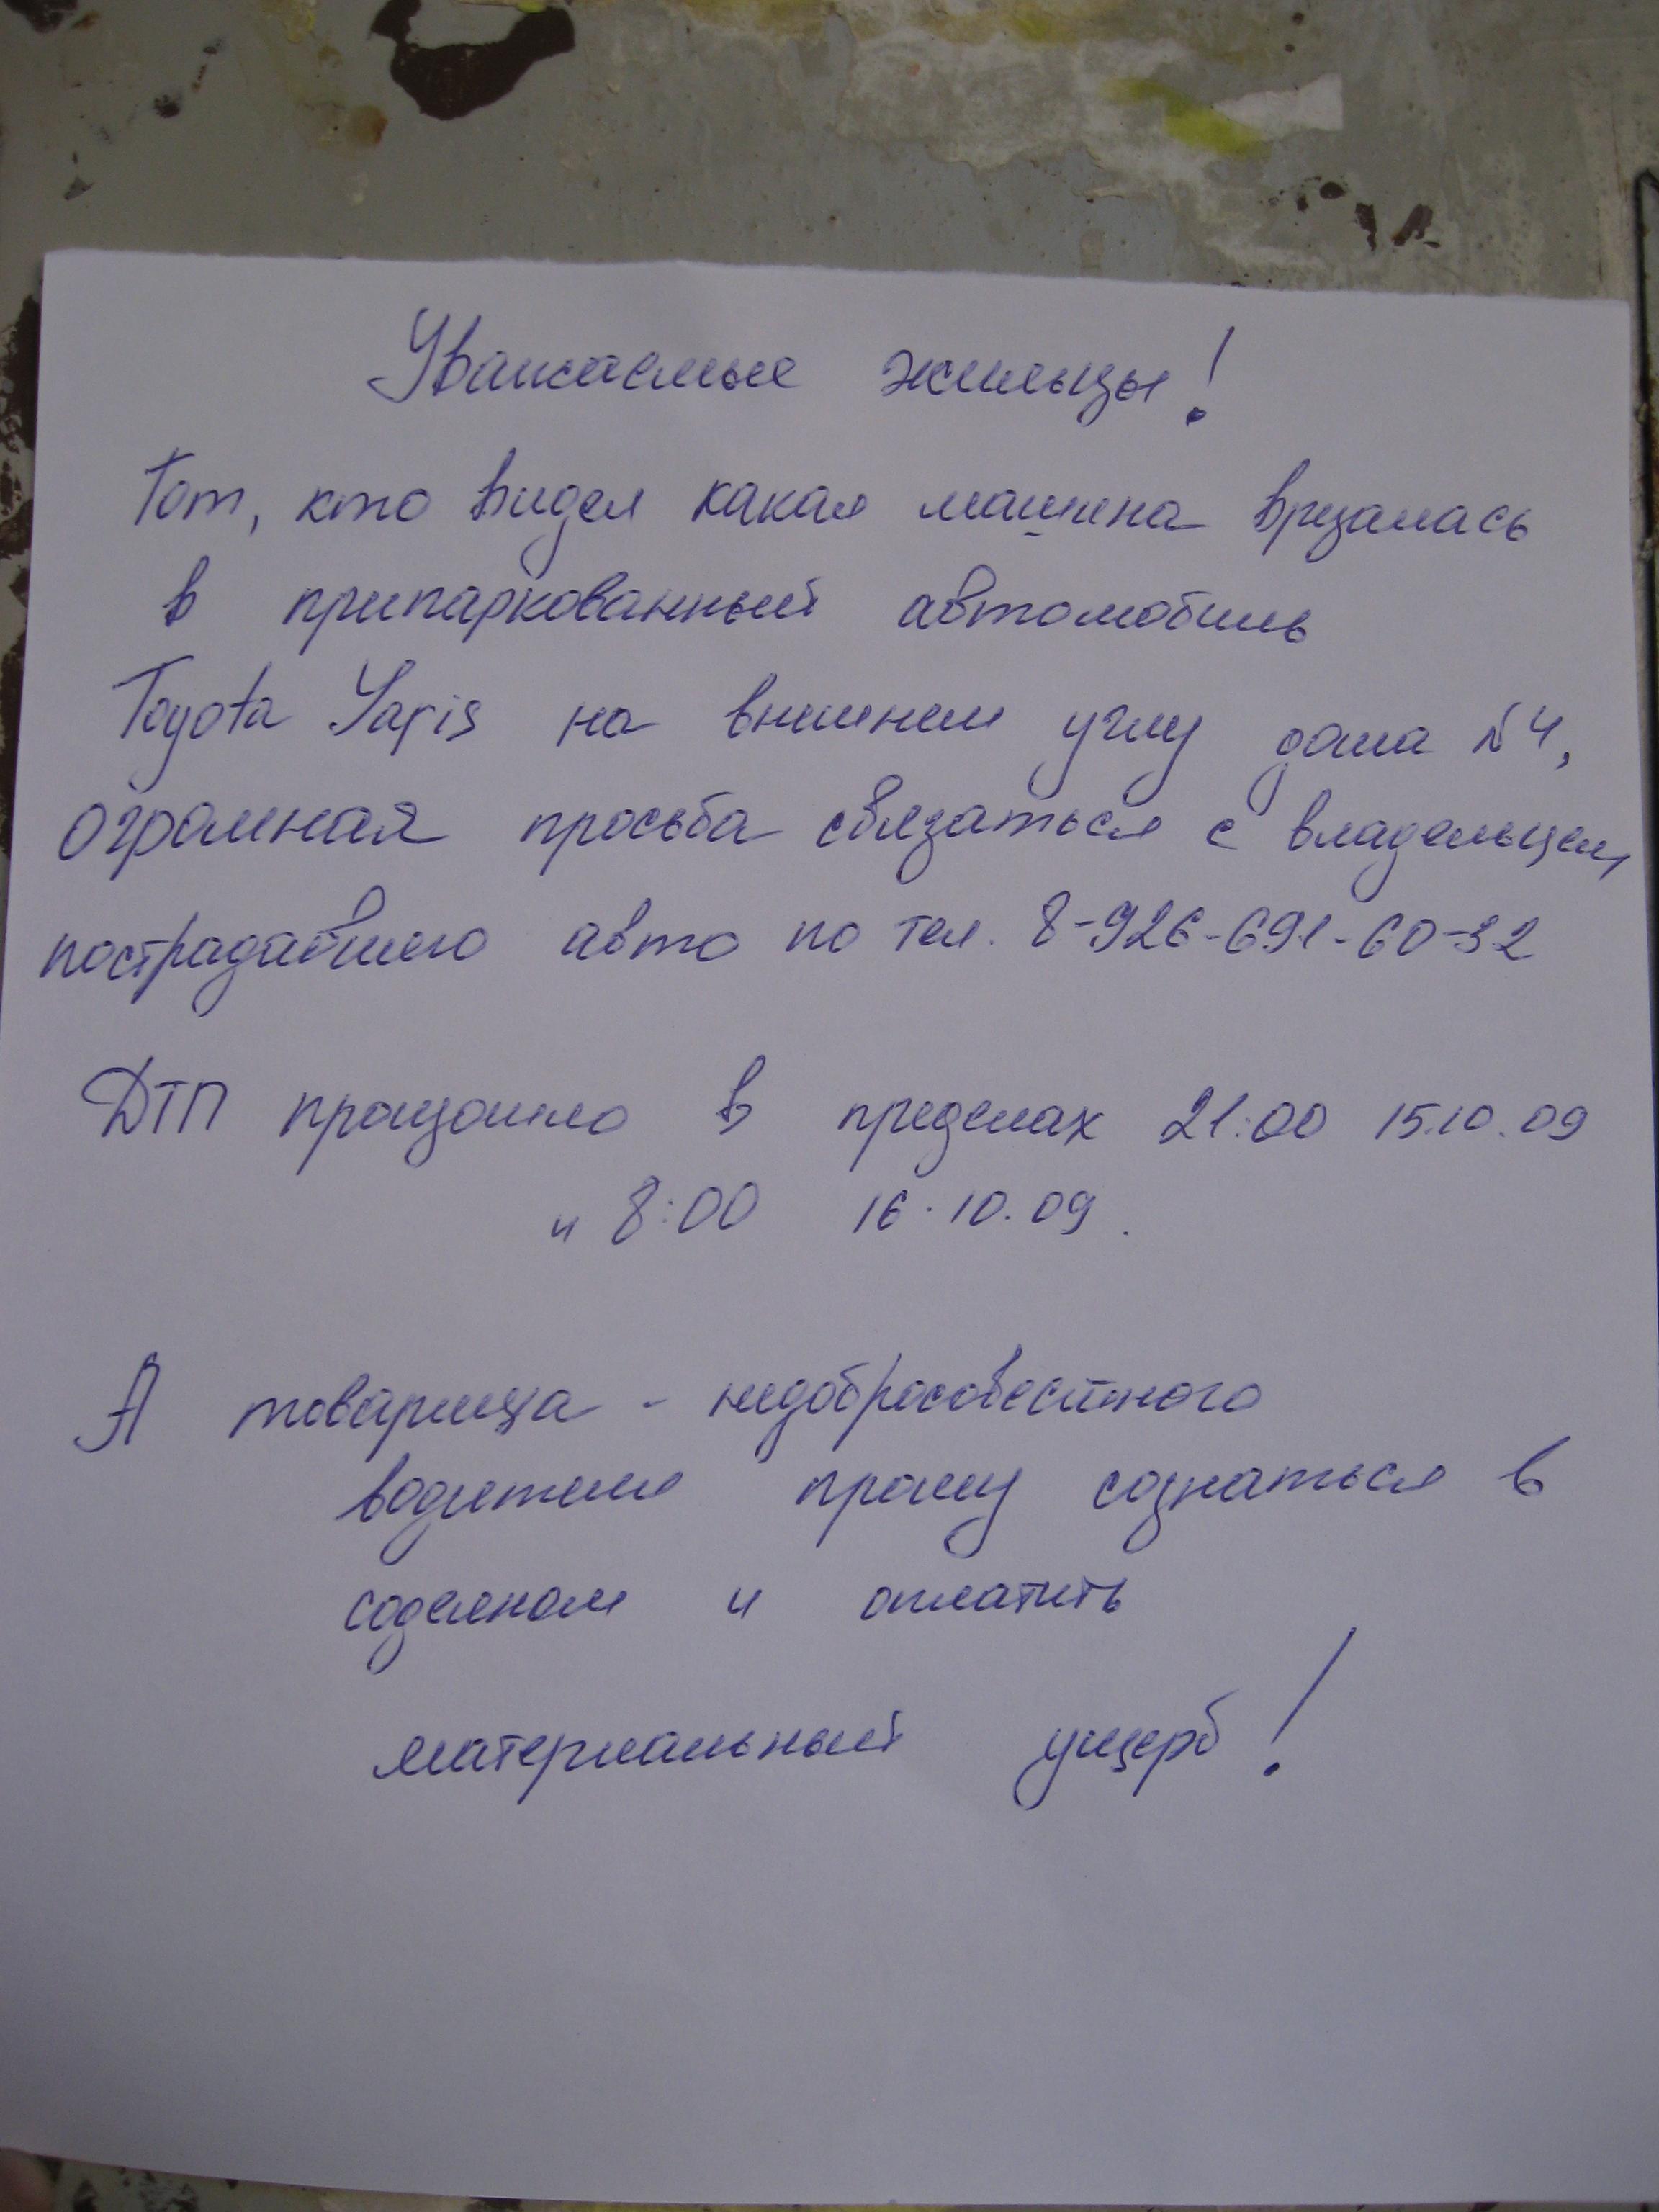 Уважаемые жильцы!
Тот, кто видел какая машина врезалась
в припаркованный автомобиль
Toyota Yaris на внешнем углу дома №4,
огромная просьба связаться с владельцем
пострадавшего авто по тел. 8-926-691-60-32
ДТП произошло в пределах 21:00 15.10.09
и 8:00 16.10.09.
А товарища - недобросовестного
водителя прошу сознаться в
содеяном и оплатить
материальный ущерб!